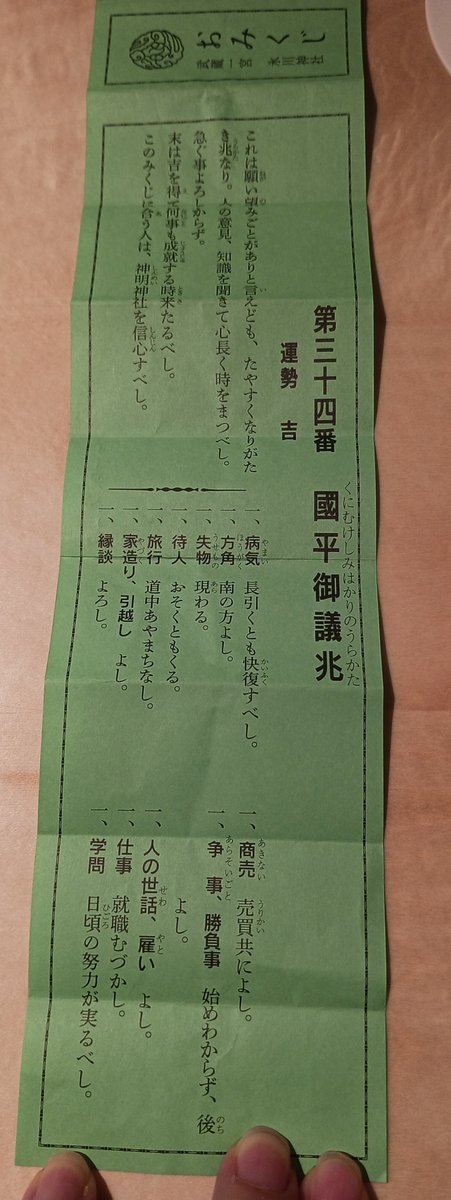 おみくじ
武蔵一宮 氷川神社
第三十四番 國平御議兆
くにむけしみはかりのうらかた
運勢 吉
これは願い望みごとがありと言えども、たやすくなりがた
き兆なり。人の意見、知識を聞きて心長く時をまつべし。
急ぐ事よろしからず。
末は吉を得て何事も成就する時来たるべし。
このみくじに合う人は、神明神社を信心すべし。
一、病気 長引くとも快復すべし。
一、方角 南の方よし。
一、失物 現わる。
一、待人 おそくともくる。
一、旅行 道中あやまちなし。
一、家造り、引越し よし。
一、縁談 よろし。
一、商売 売買共によし。
一、争事、勝負事 始めわからず、後
よし。
一、人の世話、雇い よし。
一、仕事 就職むづかし。
一、学問 日頃の努力が実るべし。